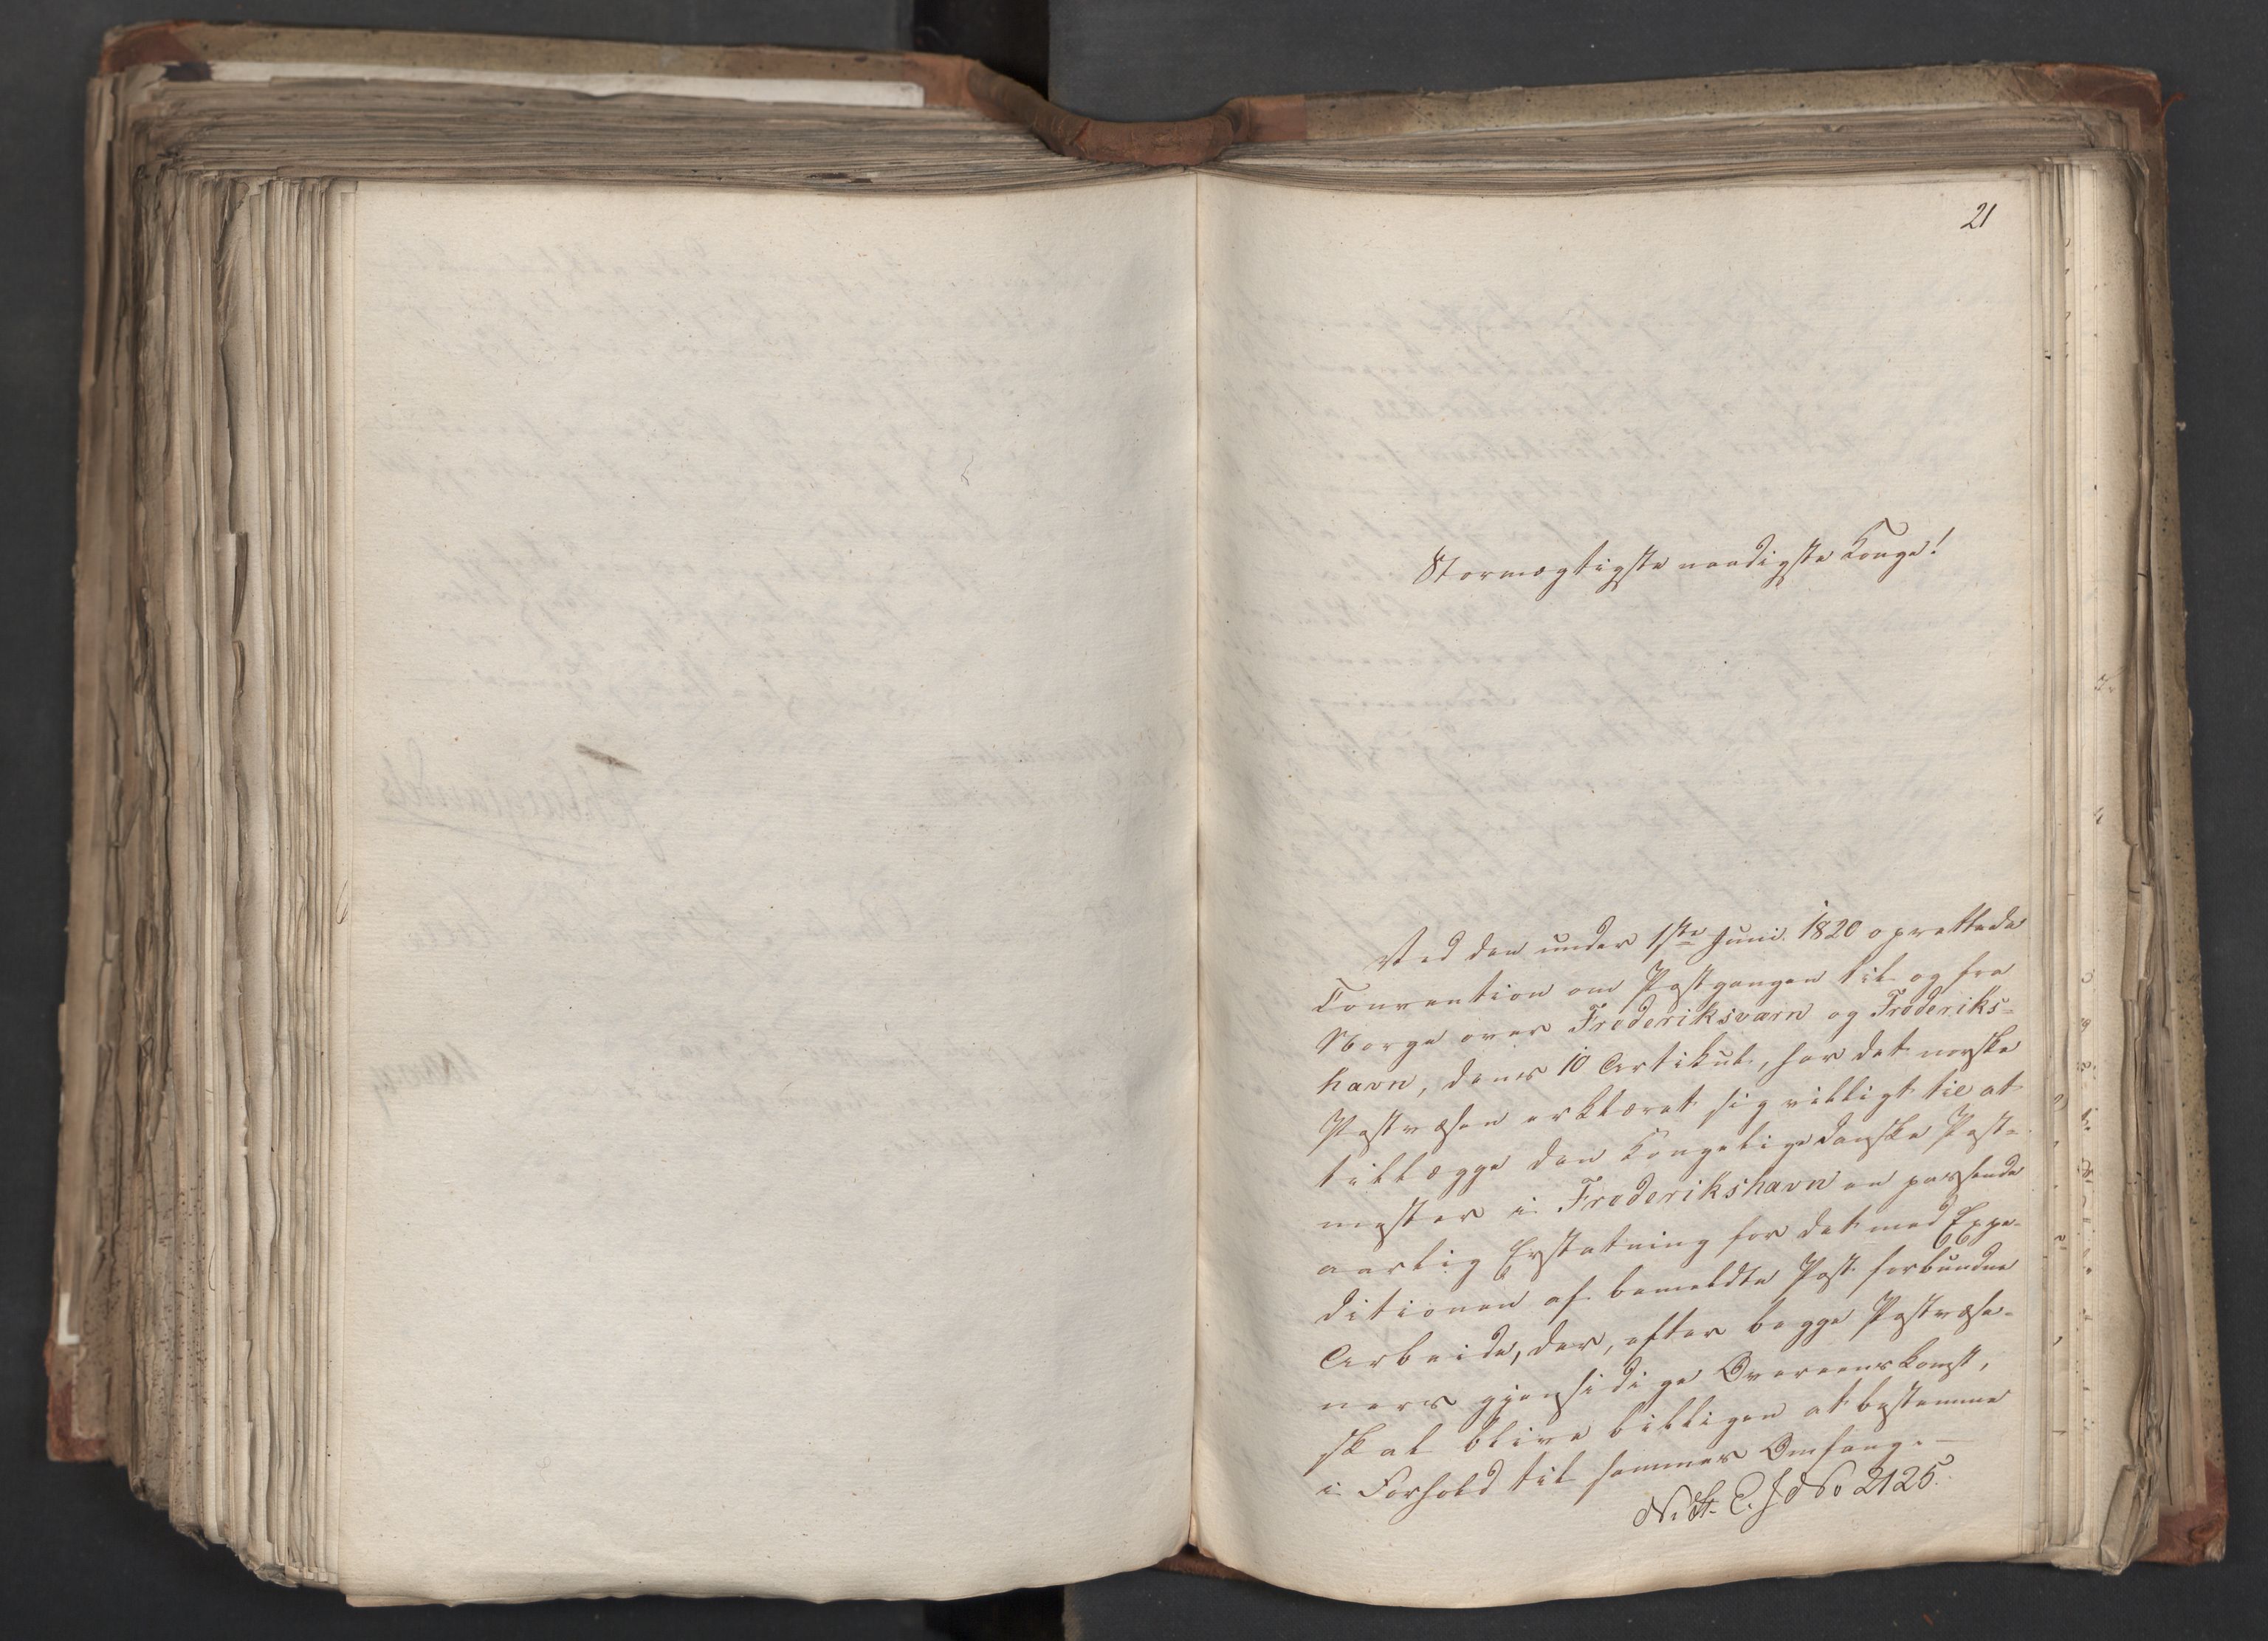 21
Stormægtigste naadigste Konge!
Ved den under 1ste Juni 1820 oprettede
Convention om Postgangen til og fra
Norge over Frederiksværn og Frederiks-
havn, dens 10 Artikul, har det norske
Postvæsen erklæret sig villigt til at
tillægge den Kongelige danske Post-
mester i Frederikshavn en passende
aarlig Erstatning for det med Expe-
ditionen af bemeldte Post forbundne
Arbeide, der, efter begge Postvæse-
ners gjensidige Overeenskomst,
skal blive billigen at bestemme
i Forhold til sammes Omfang. —
No 2125.